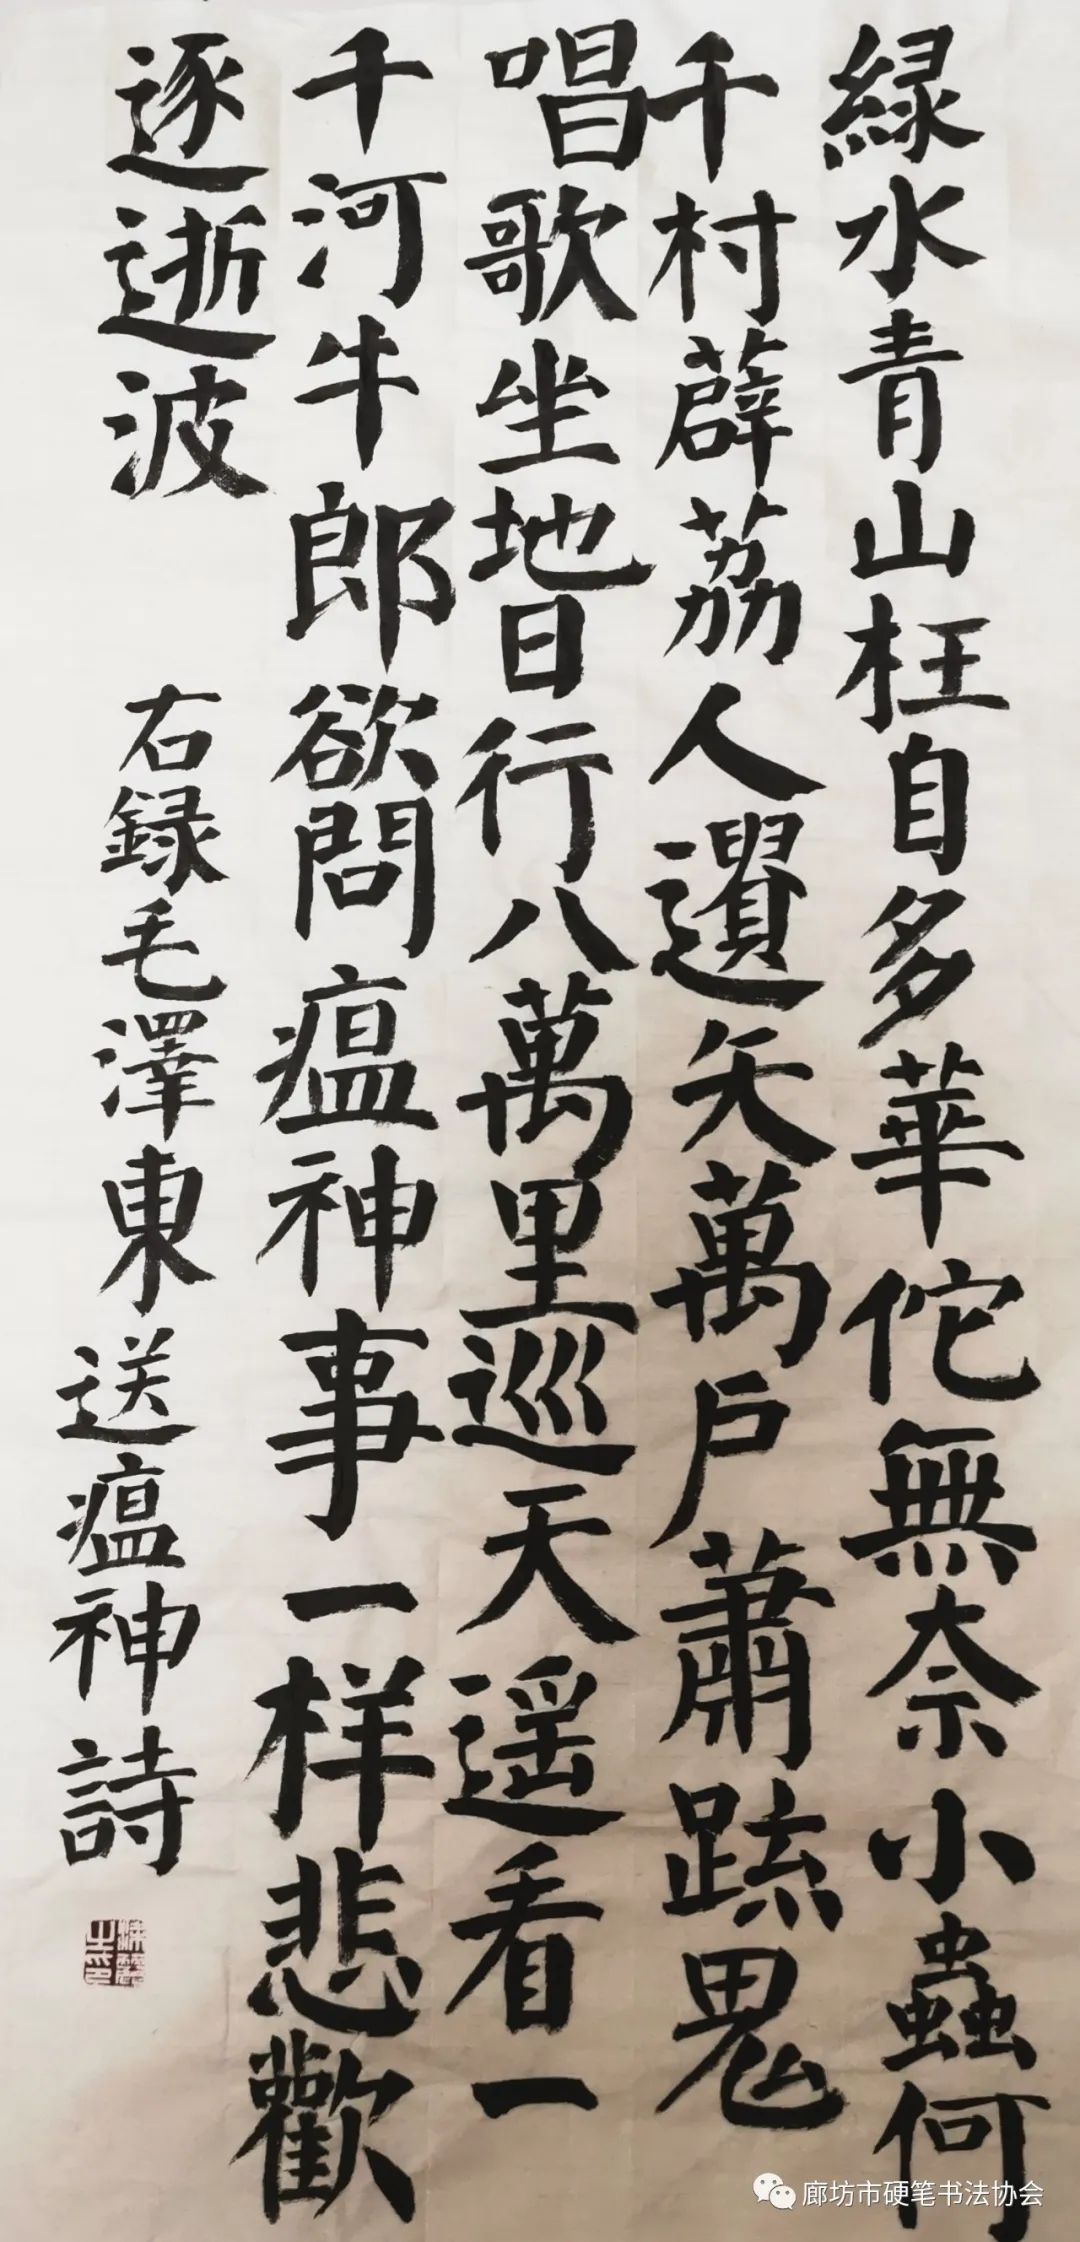 緑水青山枉自多華佗無奈小蟲何
千村薜荔人遺矢萬戶蕭疏鬼
唱歌坐地日行八萬里巡天遥看一
千河牛郎欲問瘟神事一样悲歡
逐逝波
右録毛澤東送瘟神詩
廊坊市硬笔书法协会